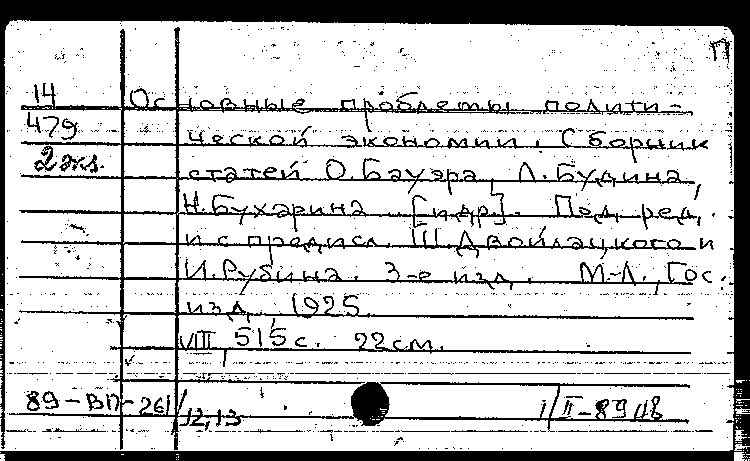 П
14 Основные проблемы полити-
479 ческой экономии. Сборник
2 экз. статей О. Бауэра, Л. Будина,
Н. Бухарина [и др.]. Под ред.
и с предисл. Ш. Двойлацкого и
И. Рубина. 3-е изд. М.-Л., Гос.
изд, 1925.
VIII, 515 с. 22 см.
89-ВП-261/12,13 1/II-89